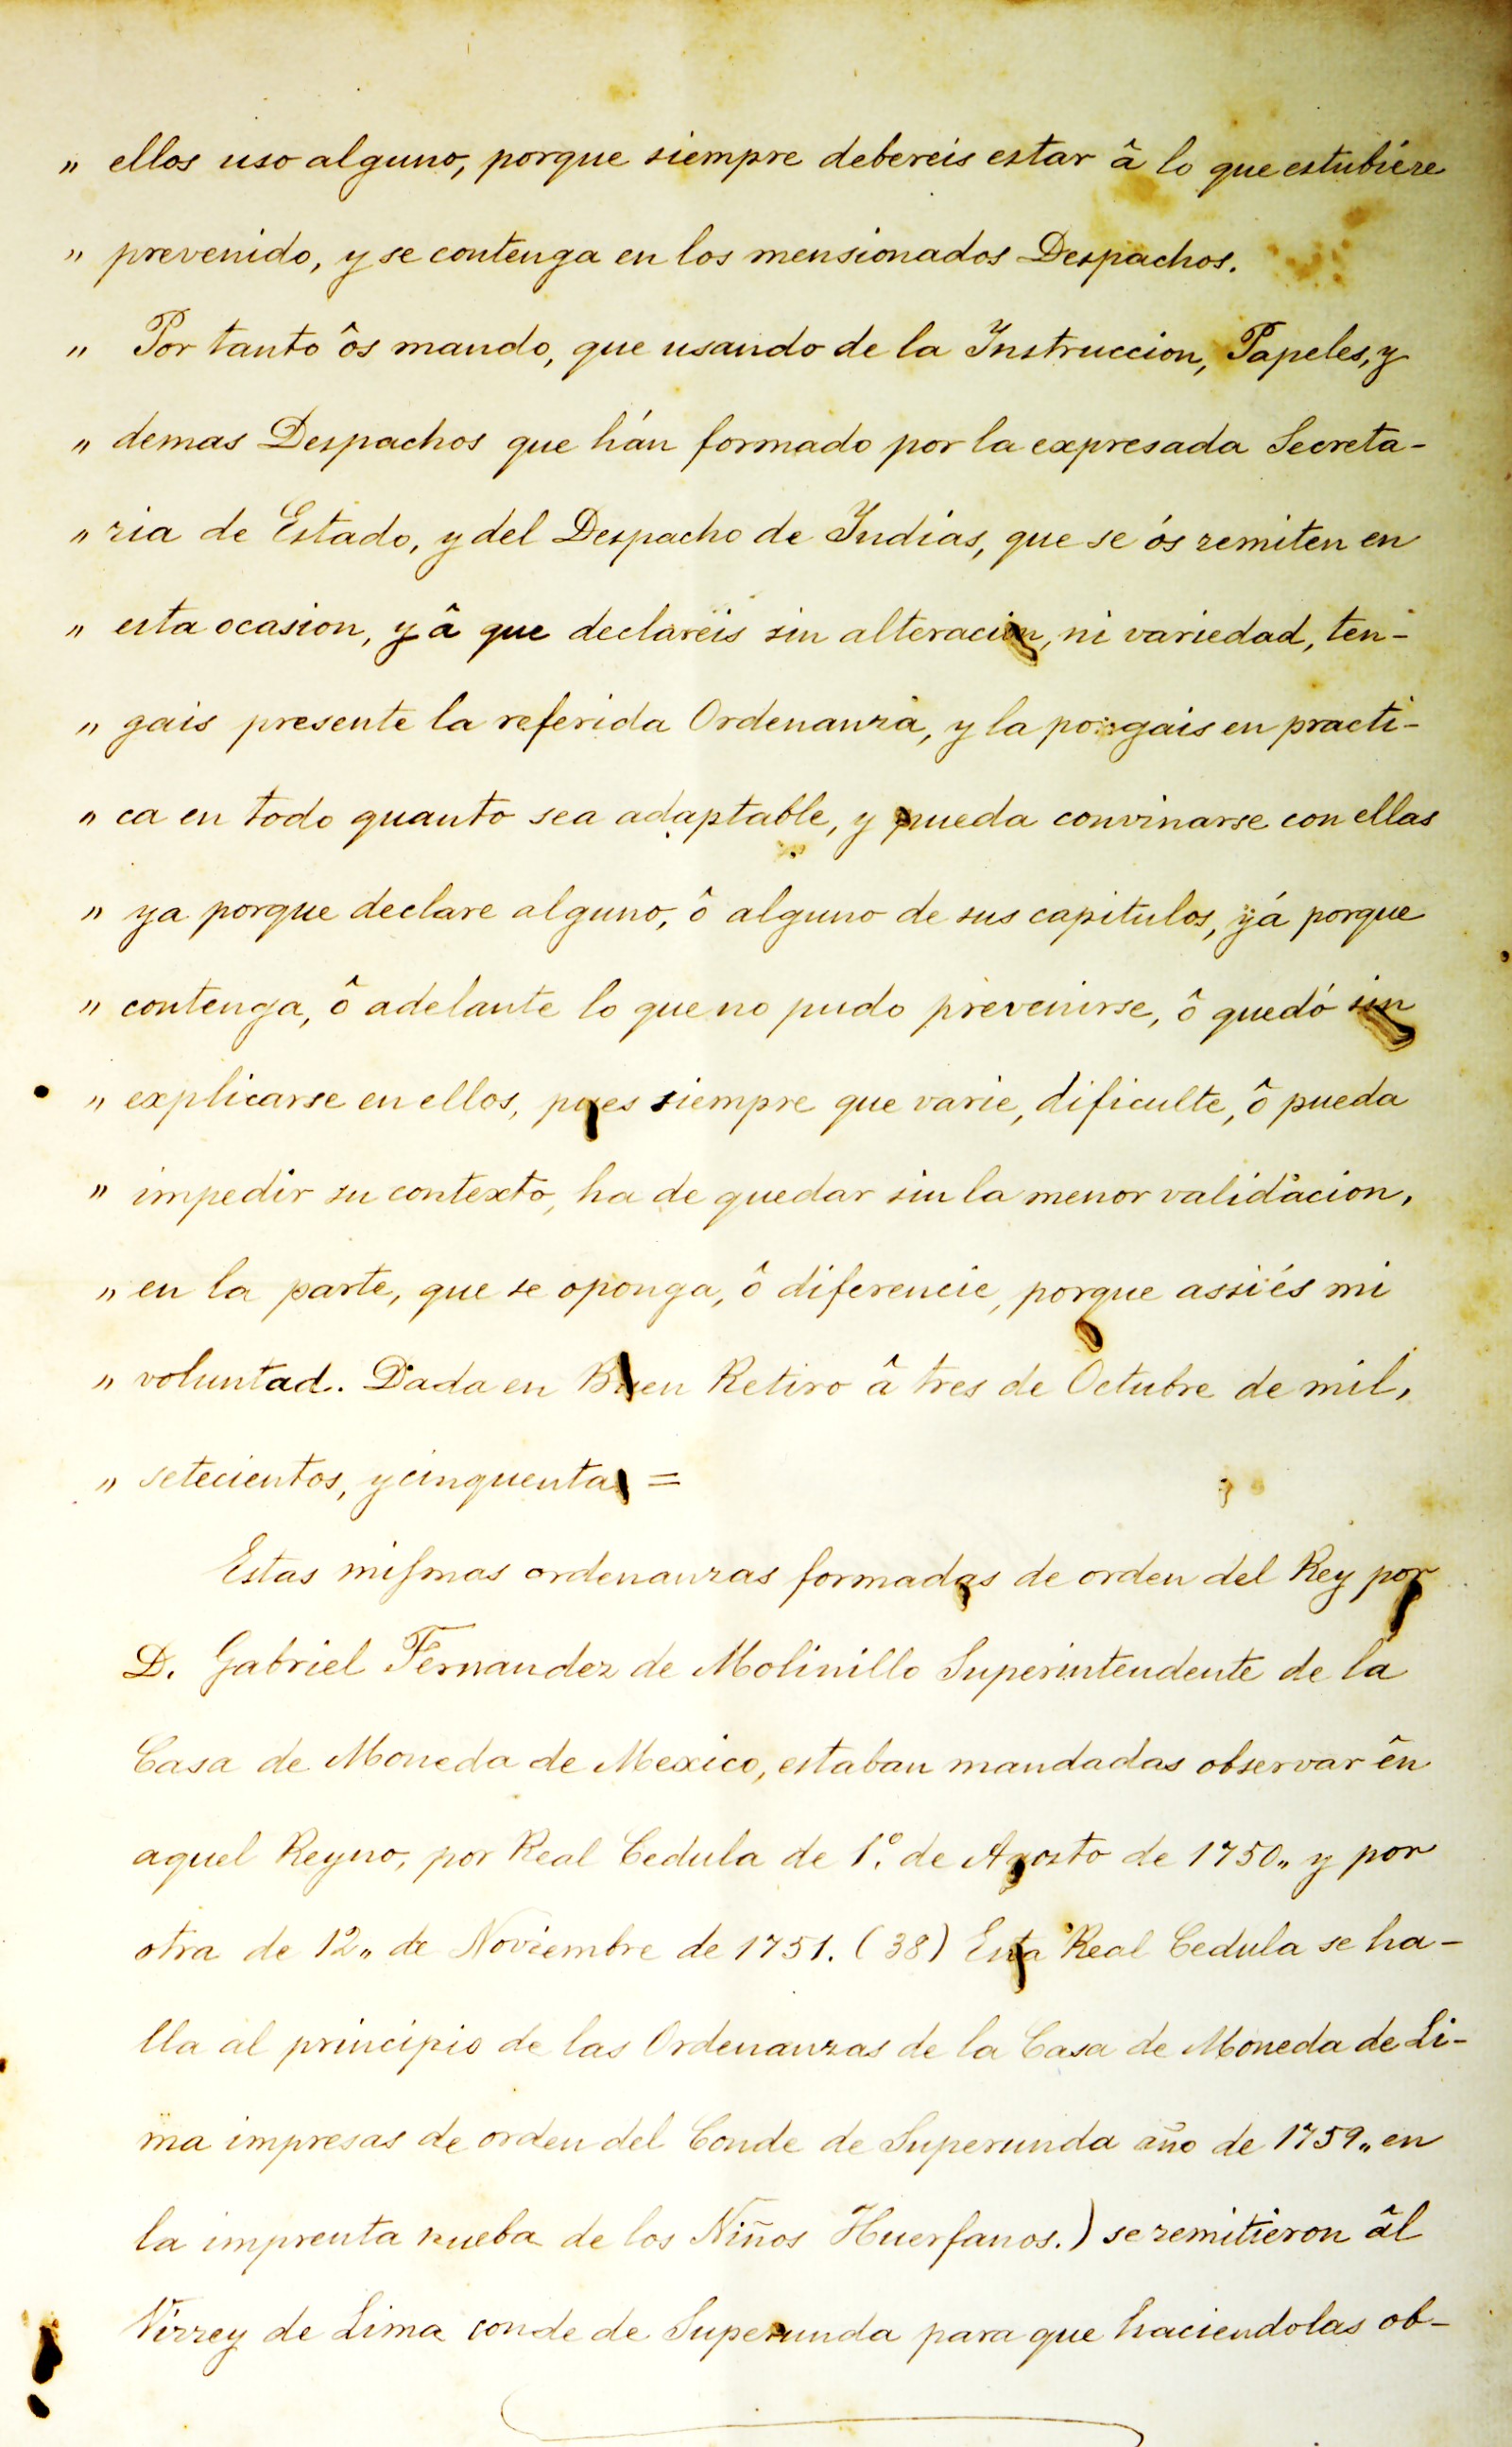 „ ellos uso alguno, porque siempre debereis estar â lo que estubiére
„ prevenido, y se contenga en los mensionados Despachos.
„ Por tanto ôs mando, que usando de la Instruccion, Papeles, y
„ demas Despachos que hán formado por la expresada Secreta-
„ ria de Estado, y del Despacho de Indias, que se ós remiten en
„ esta ocasion, y â que declaréis sin alteracion, ni variedad, ten-
„ gais presente la referida Ordenanza, y la pongais en practi-
„ ca en todo quanto sea adaptable, y pueda convinarse con ellas
„ ya porque declare alguno, ô alguno de sus capitulos, ÿá porque
„ contenga, ô adelante lo que no pudo prevenirse, ô quedó sin
„ explicarse en ellos, pues siempre que varie, dificulte, ô pueda
„ impedir su contexto, ha de quedar sin la menor validacion,
„ en la parte, que se oponga, ô diferencie, porque assi és mi
„ voluntad. Dada en Buen Retiro â tres de Octubre de mil,
„ setecientos, y cinquenta =
Estas miſmas ordenanzas formadas de orden del Rey por
D. Gabriel Fernandez de Molinillo Superintendente de la
Casa de Moneda de Mexico, estaban mandadas observar ên
aquel Reyno, por Real Cedula de 1º. de Agosto de 1750„ y por
otra de 12„ de Noviembre de 1751. (38) Esta Real Cedula se ha-
lla al principio de las Ordenanzas de la Casa de Moneda de Li-
ma impresas de orden del Conde de Superunda año de 1759„ en
la imprenta nueba de los Niños Huerfanos.) se remitieron âl
Virrey de Lima conde de Superunda para que haciendolas ob-